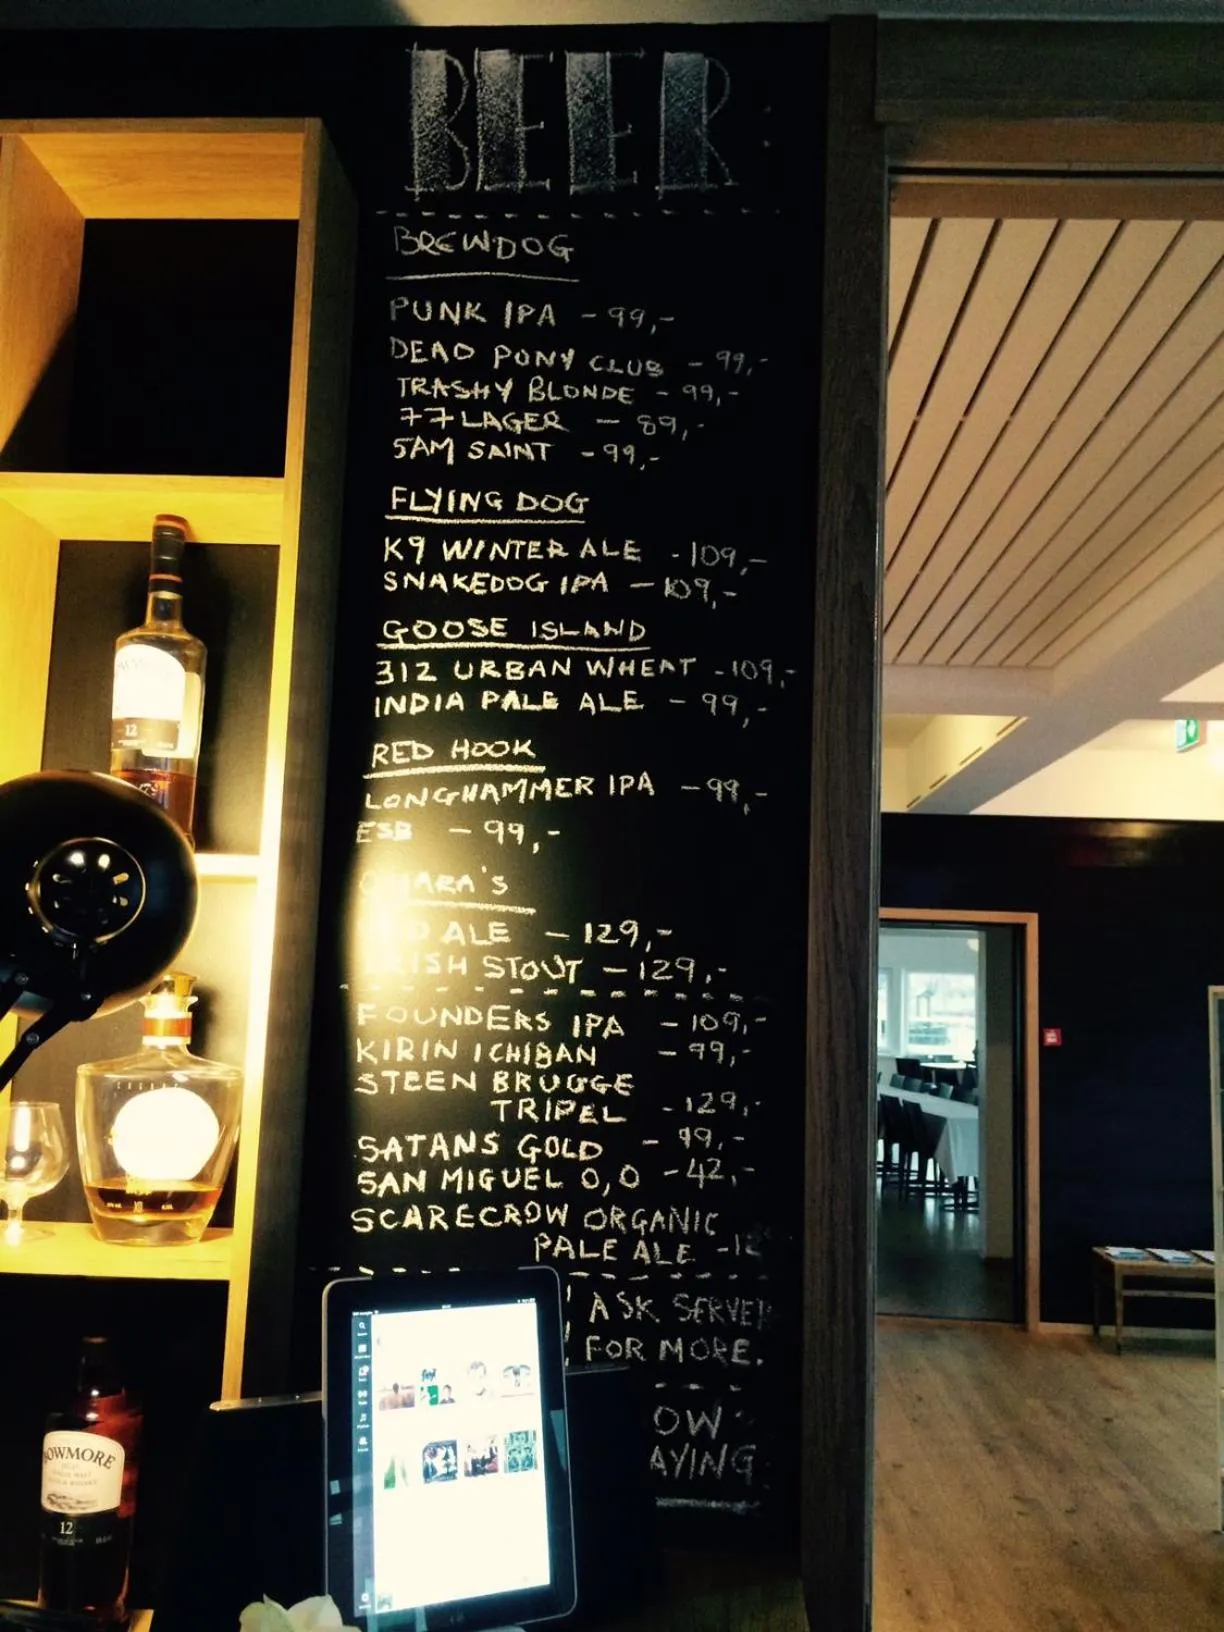 BEER:
BREWDOG
PUNK IPA - 99,-
DEAD PONY CLUB - 99,-
TRASHY BLONDE - 99,-
77 LAGER - 89,-
5AM SAINT - 99,-
FLYING DOG
K9 WINTER ALE - 109,-
SNAKEDOG IPA - 109,-
GOOSE ISLAND
312 URBAN WHEAT - 109,-
INDIA PALE ALE - 99,-
RED HOOK
LONGHAMMER IPA - 99,-
ESB - 99,-
O'HARA'S
ALE - 129,-
IRISH STOUT - 129,-
FOUNDERS IPA - 109,-
KIRIN ICHIBAN - 99,-
STEEN BRUGGE
TRIPEL - 129,-
SATANS GOLD - 99,-
SAN MIGUEL 0,0 - 42,-
SCARECROW ORGANIC
PALE ALE
ASK SERVER
FOR MORE.
OW
AYING
12
BOWMORE
12